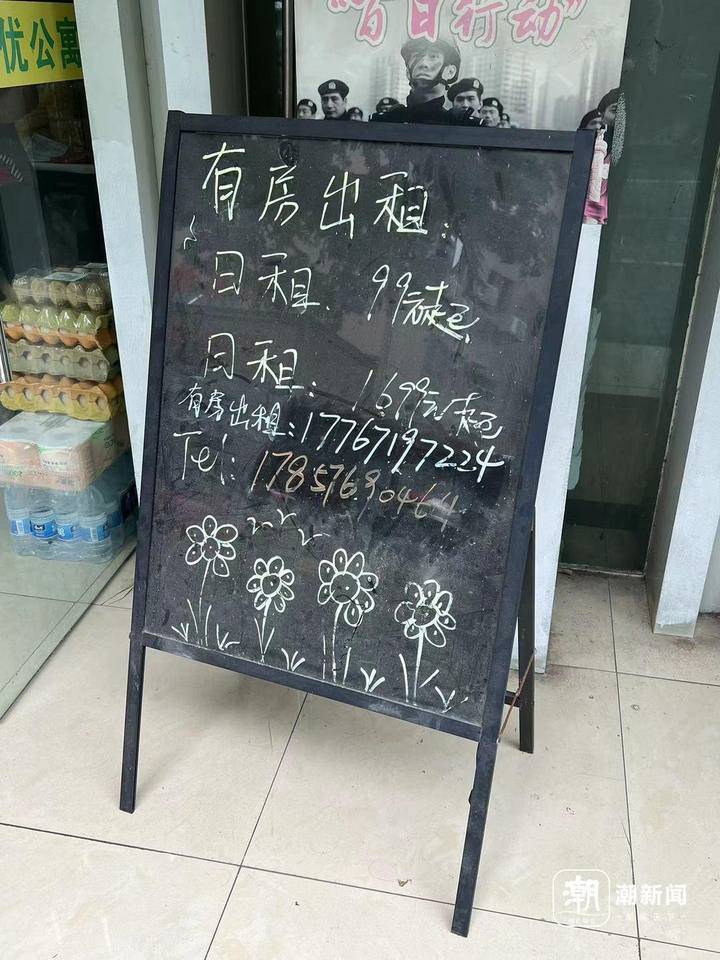 优公寓
"百日行动"
有房出租.
日租. 99元起
月租: 1699元起
有房出租:17767197224
Tel: 17857690464
潮 潮新闻